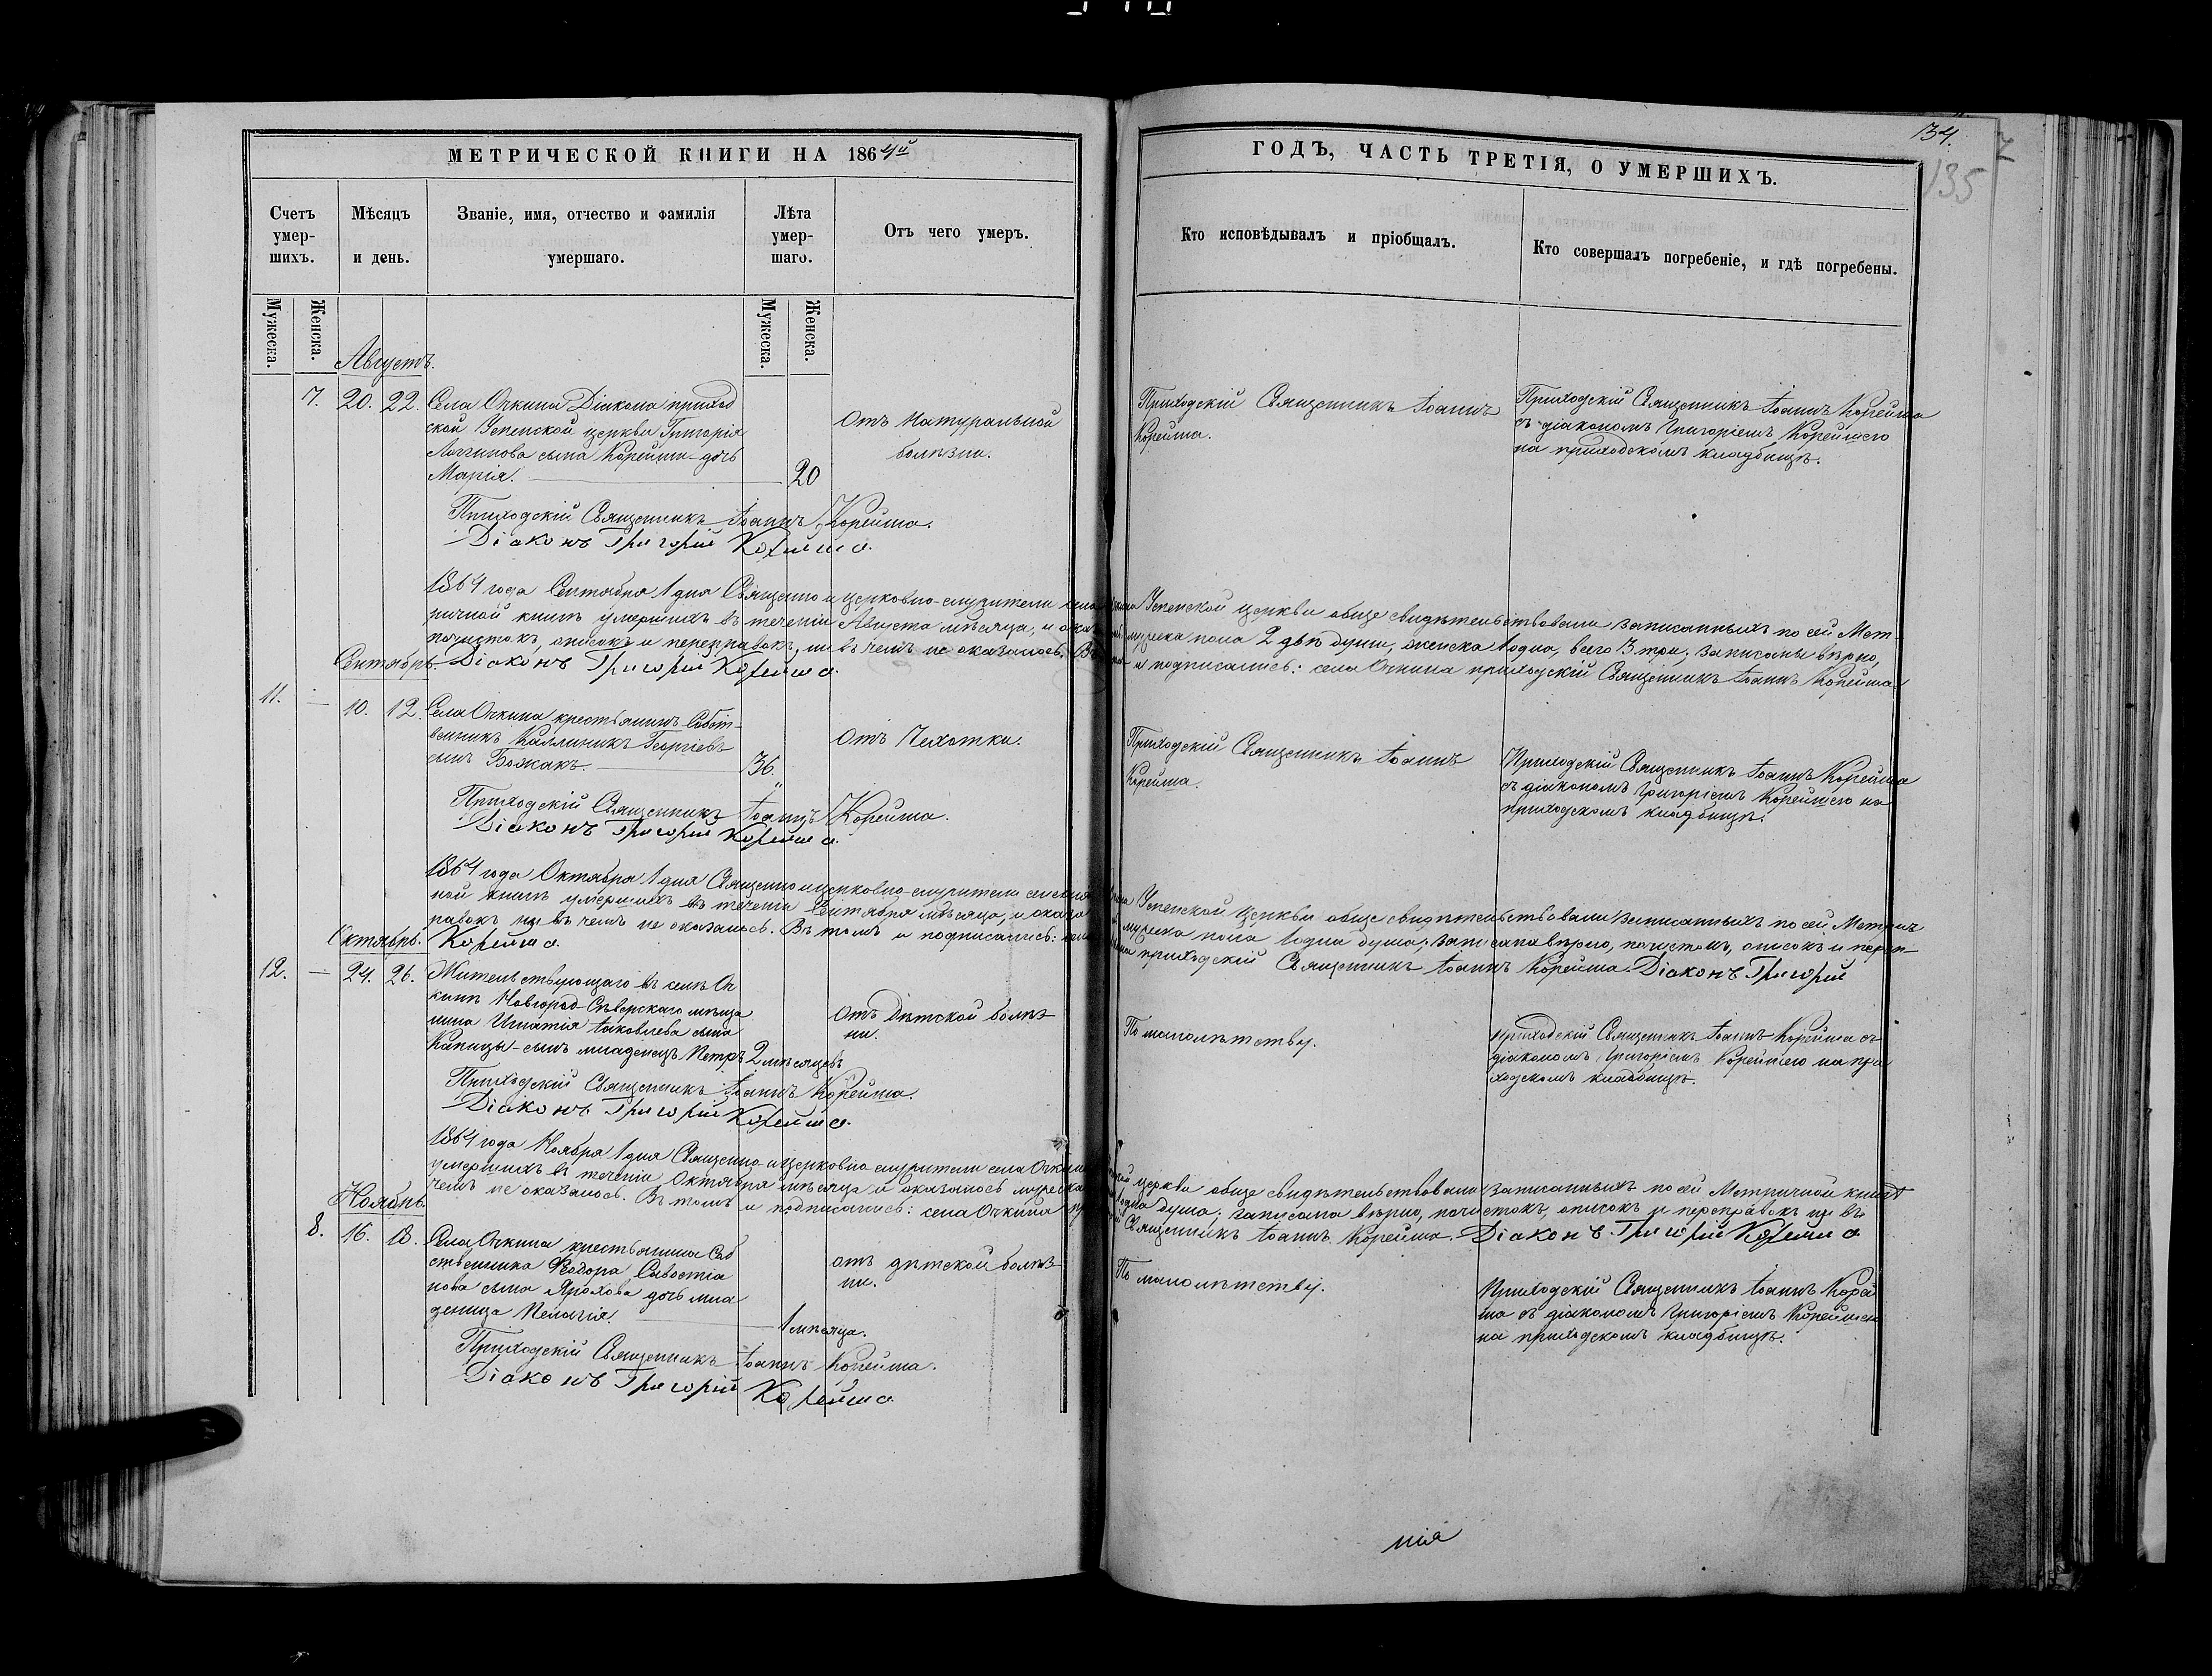 34.
135
МЕТРИЧЕСКОЙ КНИГИ НА 1864й
ГОДЪ, ЧАСТЬ ТРЕТІЯ, О УМЕРШИХЪ.
Счетъ умер-шихъ.
Мѣсяцъ и день.
Званіе, имя, отчество и фамилія умершаго.
Лѣта умер-шаго.
Отъ чего умеръ.
Кто исповѣдывалъ и пріобщалъ.
Кто совершалъ погребеніе, и гдѣ погребены.
Мужеска.
Женска.
Мужеска.
Женска.
Августъ.
7. 20. 22. Села Очкина Діакона приход
ской Успенской церкви Григорія
Логгинова сына Корейши дочь
Марія. 20
Отъ Натуральной
болѣзни.
Приходскій Священникъ Іоаннъ
Корейша.
Приходскій Священникъ Іоаннъ Корейша
съ діакономъ Григоріемъ Корейшею
на приходскомъ кладбищѣ.
Приходскій Священникъ Іоаннъ Корейша.
Діаконъ Григорій Корейша.
1864 года Сентября 1 дня Священно и церковно-служители села Успенской церкви обще свидѣтельствовали записанныхъ по сей Мет-
ричной книгѣ умершихъ въ теченіи Августа мѣсяца, и мужеска пола 2 двѣ души, женска 1 одна, всего 3 три; записаны вѣрно,
почистокъ, описокъ и переправокъ, ни въ чемъ не оказалось. и подписались: села Очкина приходскій Священникъ Іоаннъ Корейша
Діаконъ Григорій Корейша.
Сентябрь.
11. — 10. 12. Села Очкина крестьянинъ Собст-
венникъ Каллиникъ Георгіевъ
сынъ Божакъ. 36.
Отъ Чехотки.
Приходскій Священникъ Іоаннъ
Корейша.
Приходскій Священникъ Іоаннъ Корейша
съ діакономъ Григоріемъ Корейшею на
приходскомъ кладбищѣ.
Приходскій Священникъ Іоаннъ Корейша.
Діаконъ Григорій Корейша.
1864 года Октября 1 дня Священно и церковно-служители Успенской церкви обще свидѣтельствовали записанныхъ по сей Метрич
ной книгѣ умершихъ въ теченіи Сентября мѣсяца, и мужеска пола 1 одна душа; записана вѣрно, почистокъ, описокъ и переп-
равокъ ни въ чемъ не оказалось. Въ томъ и подписались: приходскій Священникъ Іоаннъ Корейша. Діаконъ Григорій
Корейша.
Октябрь.
12. — 24. 26. Жительствующаго въ селѣ Оч
кинѣ Новгород-Сѣверскаго мѣща
нина Игнатія Іаковлева сына
Капицы-сынъ младенецъ Петръ 2 мѣсяцевъ
Отъ дѣтской болѣз
ни.
По малолѣтству.
Приходскій Священникъ Іоаннъ Корейша съ
діакономъ Григоріемъ Корейшею на при
ходскомъ кладбищѣ.
Приходскій Священникъ Іоаннъ Корейша.
Діаконъ Григорій Корейша.
1864 года Ноября 1 дня Священно и церковно-служители села церкви обще свидѣтельствовали записанныхъ по сей Метричной книгѣ
умершихъ въ теченіи Октября мѣсяца и оказалось мужеска душа; записана вѣрно, почистокъ, описокъ и переправокъ ни въ
чемъ не оказалось. Въ томъ и подписались: села Очкина Священникъ Іоаннъ Корейша. Діаконъ Григорій Корейша
Ноябрь.
8. 16. 18. Села Очкина крестьянина Соб
ственника Ѳеодора Савостіа
нова сына Ярохова дочь мла
деница Пелагія. 1 мѣсяца.
отъ дѣтской болѣз
ни.
По малолѣтству.
Приходскій Священникъ Іоаннъ Корей
ша съ діакономъ Григоріемъ Корейшею
на приходскомъ кладбищѣ.
Приходскій Священникъ Іоаннъ Корейша.
Діаконъ Григорій Корейша.
нія